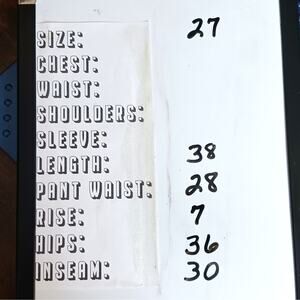 SIZE: 27
CHEST:
WAIST:
SHOULDERS:
SLEEVE:
LENGTH: 38
PANT WAIST: 28
RISE: 7
HIPS: 36
INSEAM: 30